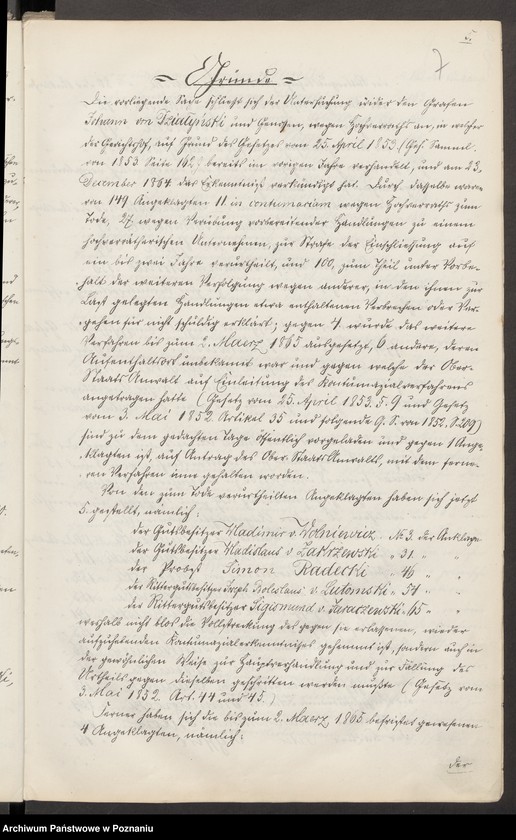 5.
7
Gründe
Die vorliegende Sache schließt sich der Untersuchung wider den Grafen
Johann von Działyński und Genossen, wegen Hochverraths an, in welcher
der Gerichtshof, auf Grund des Gesetzes vom 25. April 1853 (Ges. Samml.
von 1853 Seite 162) bereits im vorigen Jahre verhandelt, und am 23.
December 1864 das Erkenntniß verkündigt hat. Durch dasselbe waren
von 149 Angeklagten 11 in contumaciam wegen Hochverraths zum
Tode, 27 wegen Verübung vorbereitender Handlungen zu einem
hochverrätherischen Unternehmen, zur Strafe der Einschließung auf
ein bis zwei Jahre verurtheilt, und 100, zum Theil unter Vorbe-
halt der weiteren Verfolgung wegen anderer, in den ihnen zur
Last gelegten Handlungen etwa enthaltenen Verbrechen oder Ver-
gehen für nicht schuldig erklärt; gegen 4 wurde das weitere
Verfahren bis zum 2. Maerz 1865 ausgesetzt, 6 andere, deren
Aufenthaltsort unbekannt war und gegen welche der Ober-
Staats Anwalt auf Einleitung des Kontumazialverfahrens
angetragen hatte (Gesetz vom 25. April 1853. §. 9 und Gesetz
vom 3. Mai 1852. Artikel 35 und folgende G. S. von 1852. S. 209)
sind zu dem gedachten Tage öffentlich vorgeladen und gegen 1 Ange-
klagten ist, auf Antrag des Ober-Staats Anwalts, mit dem ferne-
ren Verfahren inne gehalten worden.
Von den zum Tode verurtheilten Angeklagten haben sich jetzt
5. gestellt, nämlich:
der Gutsbesitzer Wladimir v. Wolniewicz No 3. der Anklage
der Gutsbesitzer Wladislaus v. Zakrzewski " 31. " "
der Probst Simon Radecki " 46 " "
der Rittergutsbesitzer Joseph Boleslaus v. Lutomski " 54 " "
der Rittergutsbesitzer Sigismund v. Jaraczewski " 115 " "
weshalb nicht blos die Vollstreckung des gegen sie erlassenen, wieder
aufzuhebenden Kontumazialerkenntnisses gehemmt ist, sondern auch in
der gewöhnlichen Weise zur Hauptverhandlung und zur Fällung des
Urtheils gegen dieselben geschritten werden mußte (Gesetz vom
3. Mai 1852. Art. 44 und 45.)
Ferner haben sich die bis zum 2. Maerz 1865 befristet gewesenen
4 Angeklagten, nämlich:
der
Archiwum Państwowe w Poznaniu